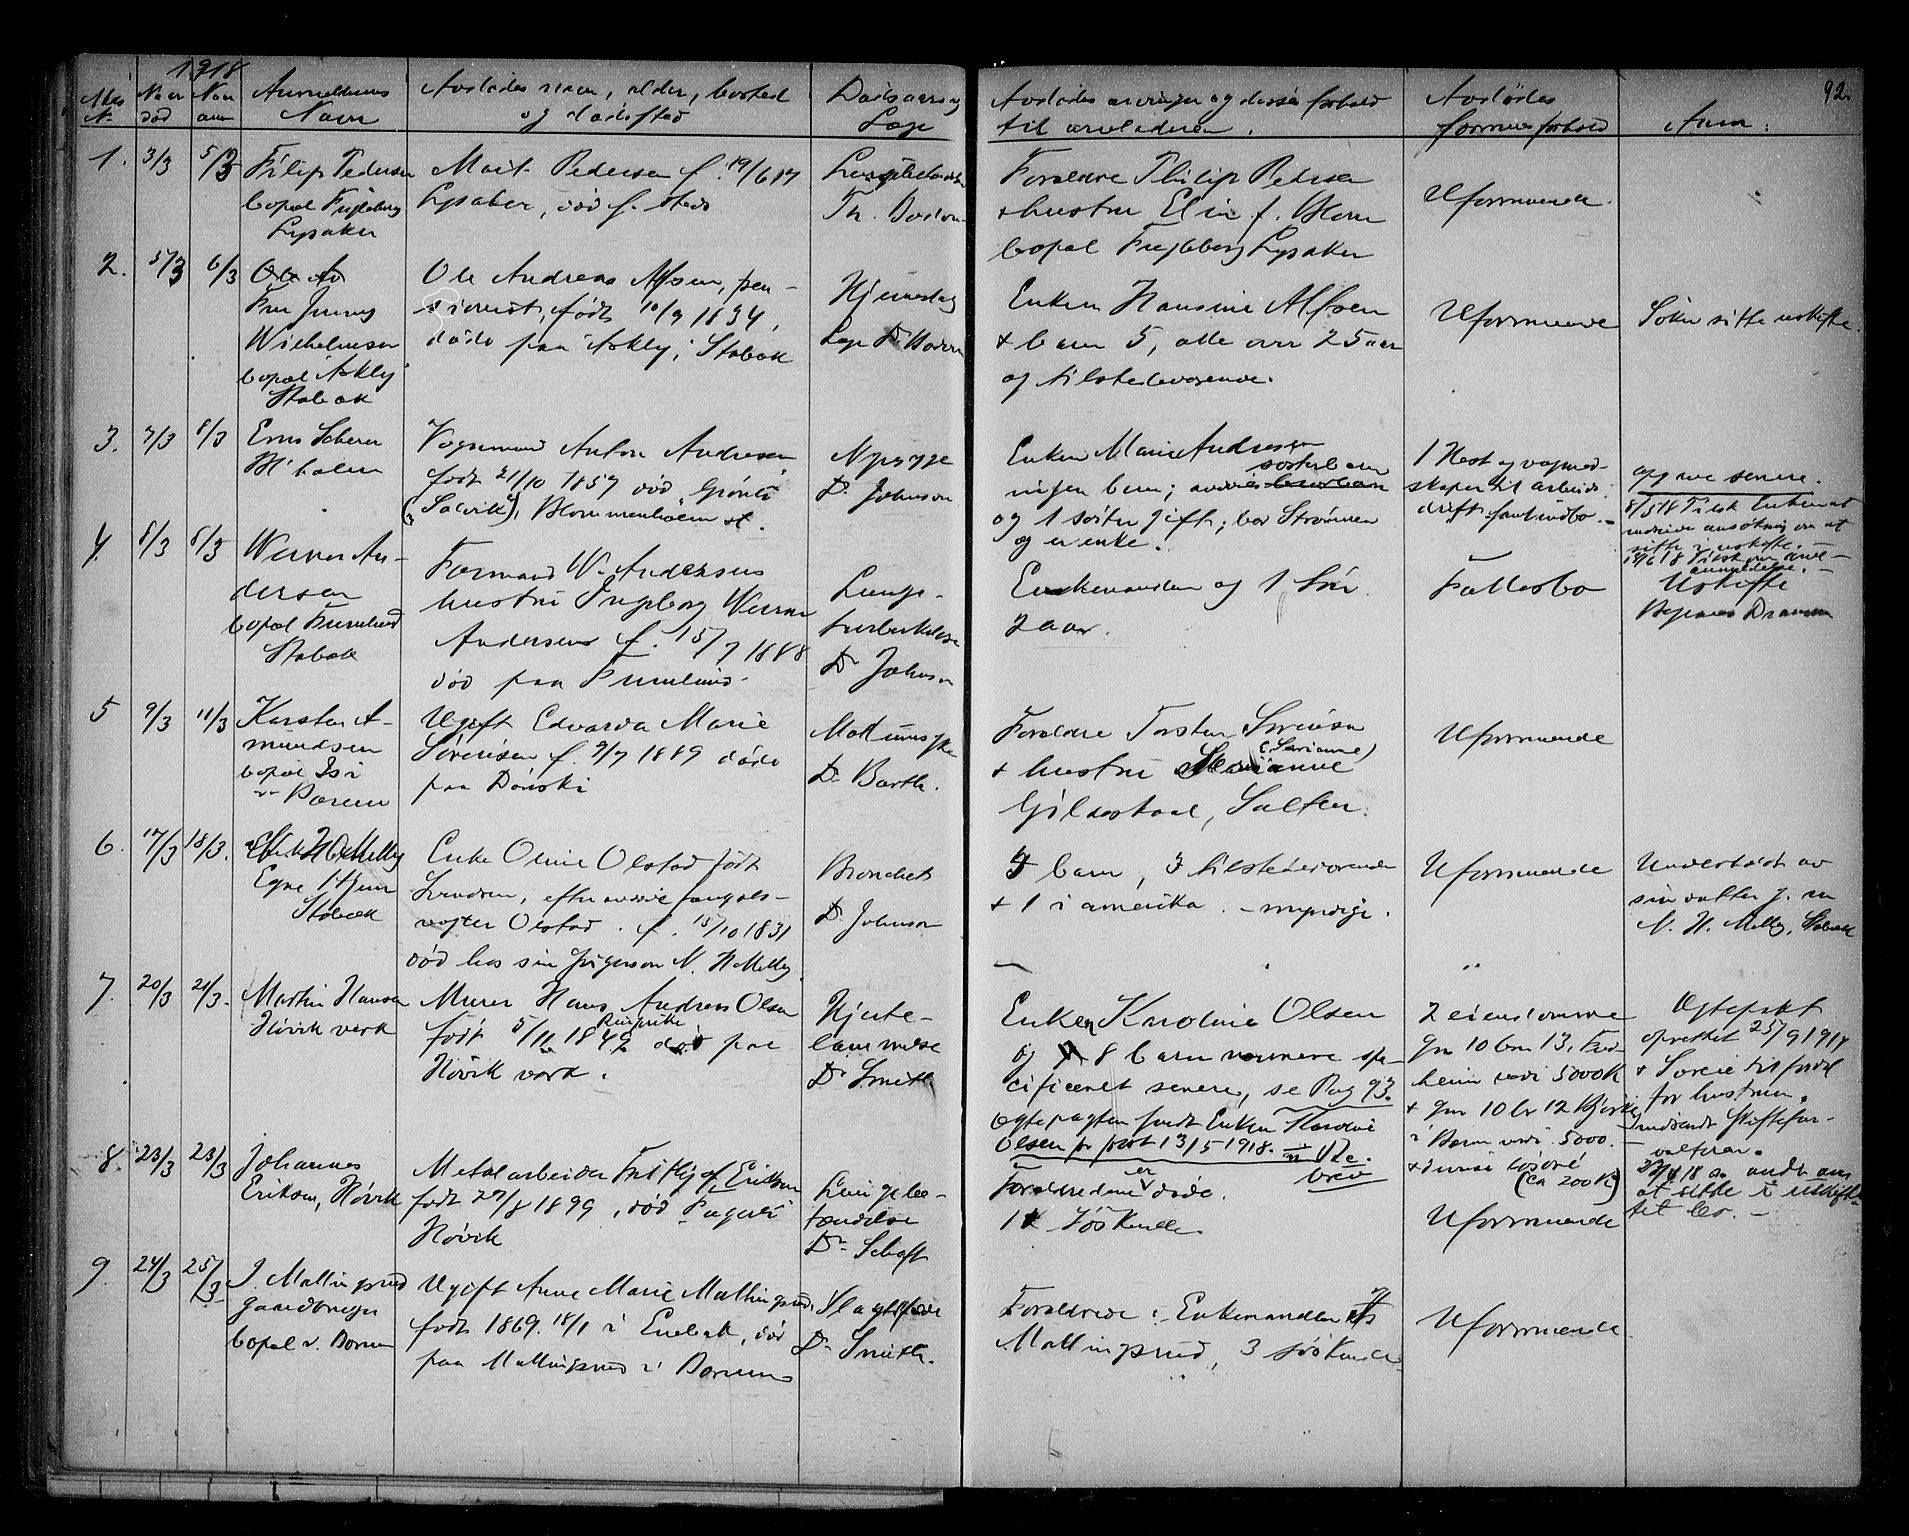 1918
92.
Anm. N. | Naar død | Naar anm | Anmelderens Navn | Avdødes navn, alder, bosted og dødssted | Dødsaarsag Læge | Avdødes arvinger og disses forhold til arveladeren. | Avdødes formuesforhold | Anm.
1. 3/3 5/3
Filip Pedersen
bopæl Fugleberg
Lysaker
Marit Pedersen f. 19/6 17
Lysaker, død s. steds
Foreldre Philip Pedersen
+ hustru Elin f.
bopæl Fugleberg Lysaker
Uformuende.
2. 5/3 6/3
Ole An
Fru Jenny
Wilhelmsen
bopæl Askly
Stabæk
Ole Andreas Alfsen, pen-
sionist, født 10/9 1834,
døde paa Askly, Stabæk
Hjerneslag
Læge Dr
Enken Hansine Alfsen
+ barn 5, alle over 25 aar
og tilstedeværende.
Uformuende
Søker sitte uskifte.
3. 7/3 8/3
Vognmand Anton Andresen
født 21/10 1857 død Grønli
(Solvik), Blommenholm st.
Nyresyge
Dr Johnson
Enken Marie Andresen
ingen barn; søsterbarn
og 1 søster gift; bor Strømmen
og er enke.
1 Hest og vognred-
skaper til arbeids
drift samt indbo.
opg ave senere.
8/3 18 Tilsk Enken at
indgive ansøkning om at
sitte i uskifte.
4. 8/3 8/3
Werner An-
dersen
bopæl Furulund
Stabæk
Formand W. Andersens
hustru Ingeborg Werner
Andersen f. 15/7 1888
død paa Furulund
Lunge-
tuberkulose
Dr Johnson
Enkemanden og 1 søn
2 aar.
Fællesbo
Uskifte
5 9/3 11/3
Karsten A-
mundsen
bopæl
v. Bærum
Ugift Edvarda Marie
Sørensen f. 9/7 1889 døde
paa Dønski
Dr Barth.
Foreldre Torsten Sørensen
(Sarianne)
+ hustru
Gildeskaal, Salten.
Uformuende
6. 17/3 18/3.
N. H. Melby
Egne Hjem
Stabæk
Enke Oline Olstad født
Svendsen, efter avdøde fængsels-
vogter Olstad. f. 15/10 1831
død hos sin svigersøn N. H Melby
Bronchit
Dr Johnson
4 barn, 3 tilstedeværende
+ 1 i amerika. - myndige.
Uformuende
Understøttet av
sin datter g. m
N. H. Melby, Stabæk
7. 20/3 21/3.
Martin Hansen
Høvik verk
Murer Hans Andreas Olsen
Ringerike
født 5/11 1849 død paa
Høvik verk.
Hjerte-
lammelse
Dr Smith
Enken Karoline Olsen
og 8 barn nærmere spe-
cificeret senere, se Pag 93.
Egtepagten sendt Enken Karoline
Olsen pr post 13/5 1918.
brev
2 eiendomme
gn 10 bn 13, Fred-
heim verdi 5000 K
+ gn 10 br 12
i Bærum verdi 5000.
+ diverse løsøre
(ca 200 K)
Egtepakt
oprettet 25/9 1914
for hustruen.
8. 23/3 23/3
Johannes
Eriksen, Høvik
Metalarbeider Fritjof Eriksen
født 27/8 1899, død
Høvik
Lungebe-
tændelse
Dr Schaft
Foreldrene er døde.
1 Søskende
Uformuende
9. 24/3 25/3
J. Mallingsrud
gaardbruger
bopæl v. Bærum
Ugift Anne Marie Mallingsrud
født 1869. 18/1 i Enebak, død
paa Mallingsrud i Bærum
Dr Smith.
Foreldrene: Enkemanden
Mallingsrud, 3 søskende
Uformuende.